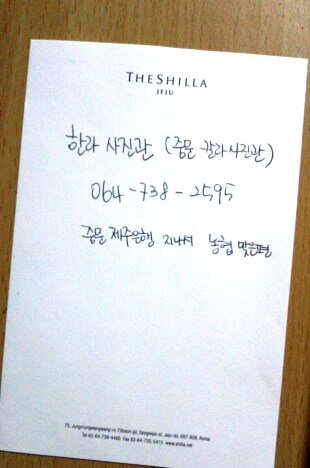 THE SHILLA
JEJU
한라 사진관 (중문 칼라사진관)
064-738-2595
중문 제주은행 지나서 농협 맞은편
75, Jungmungwangwang-ro 72beon-gil, Seogwipo-si, Jeju-do, 697-808, Korea
Tel 82-64-738-4466 Fax 82-64-735-5415 www.shilla.net